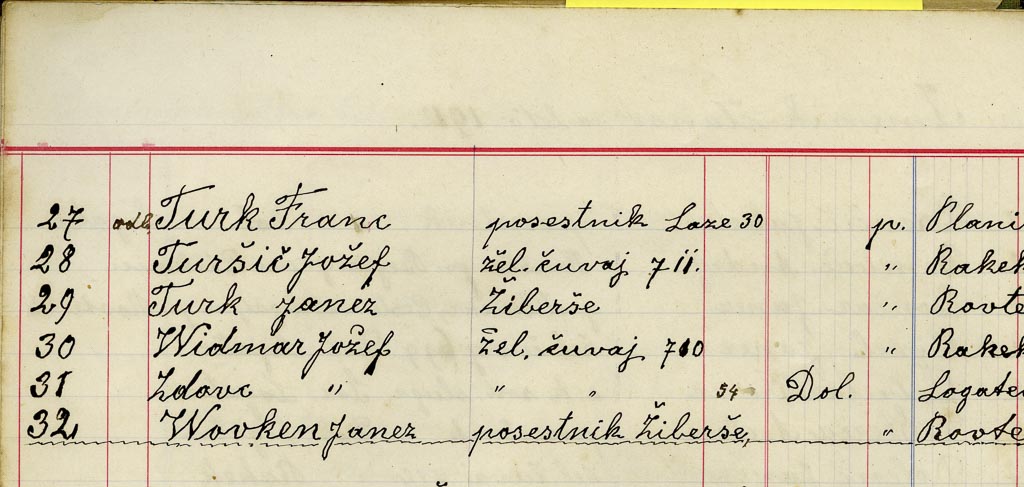 27 odb. Turk Franc posestnik Laze 30 p. Plani
28 Turšič Jožef žel. čuvaj 711. " Rakek
29 Turk Janez Žiberše " Rovte
30 Widmar Jožef žel. čuvaj 710 " Rakek
31 Zdovc " " " 54 Dol. Logatec
32 Wovken Janez posestnik Žiberše, " Rovte